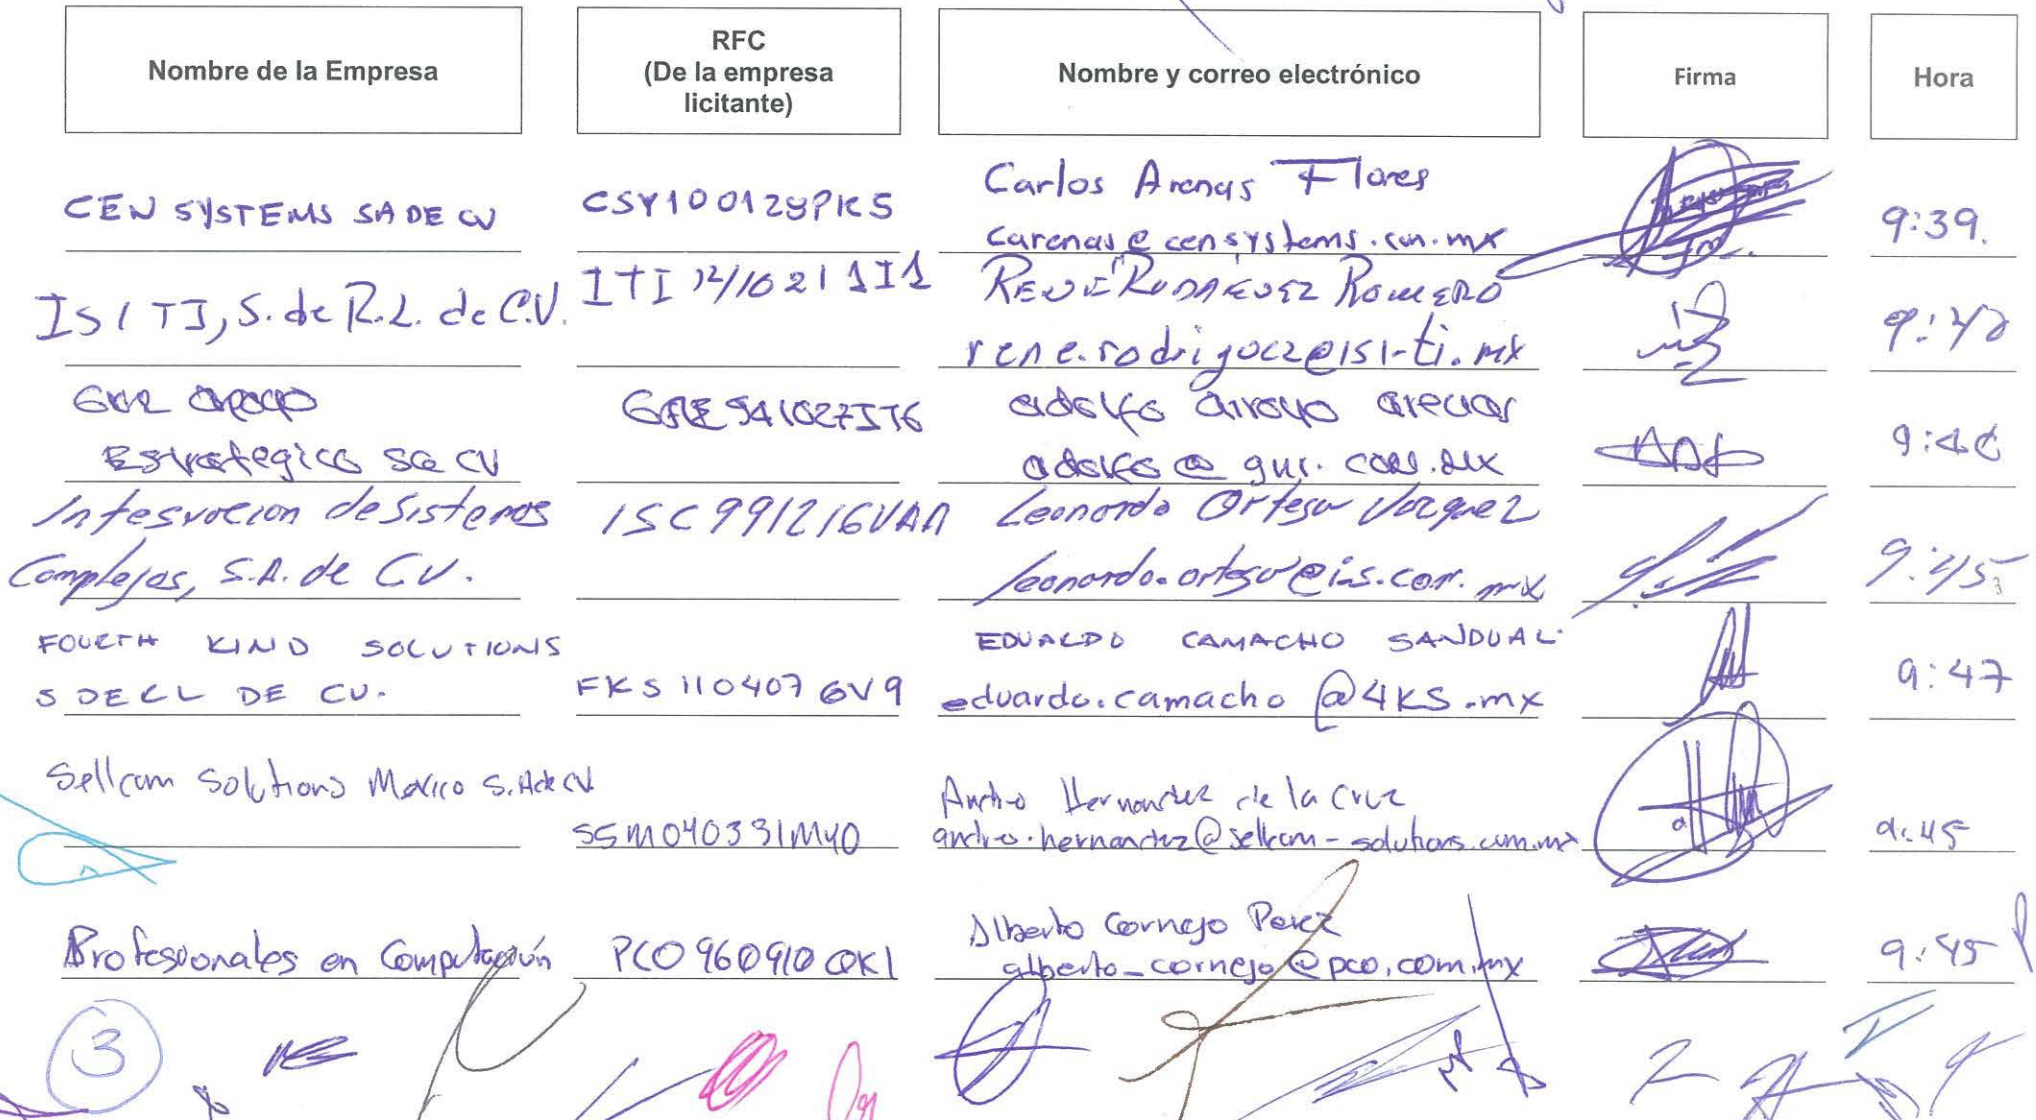 Nombre de la Empresa
RFC
(De la empresa
licitante)
Nombre y correo electrónico
Firma
Hora
CEN SYSTEMS SA DE CV
CSY100129PK5
Carlos Arenas Flores
carenas@censystems.com.mx
9:39.
ISITI, S. de R.L. de C.V.
ITI 121102 1I1
RENE RODRIGUEZ ROMERO
rene.rodriguez@isi-ti.mx
9:40
GUR apoyo
Estrategico SA CV
adolfo arroyo
adolfo@gur.com.mx
9:40
Integracion de Sistemas
Complejos, S.A. de C.V.
ISC991216VAA
Leonardo Ortega Vazquez
leonardo.ortega@i-s.com.mx
9:45
FOURTH KIND SOLUTIONS
S DE RL DE CV.
FKS 110407 6V9
EDUARDO CAMACHO SANDOVAL
eduardo.camacho@4KS.mx
9:47
Sellcom Solutions Mexico S.A de CV
SSM040331MY0
Andres Hernandez de la Cruz
andres.hernandez@sellcom-solutions.com.mx
9:45
Profesionales en Computación
PCO960910QK1
Alberto Cornejo Perez
alberto_cornejo@pco.com.mx
9:45
3